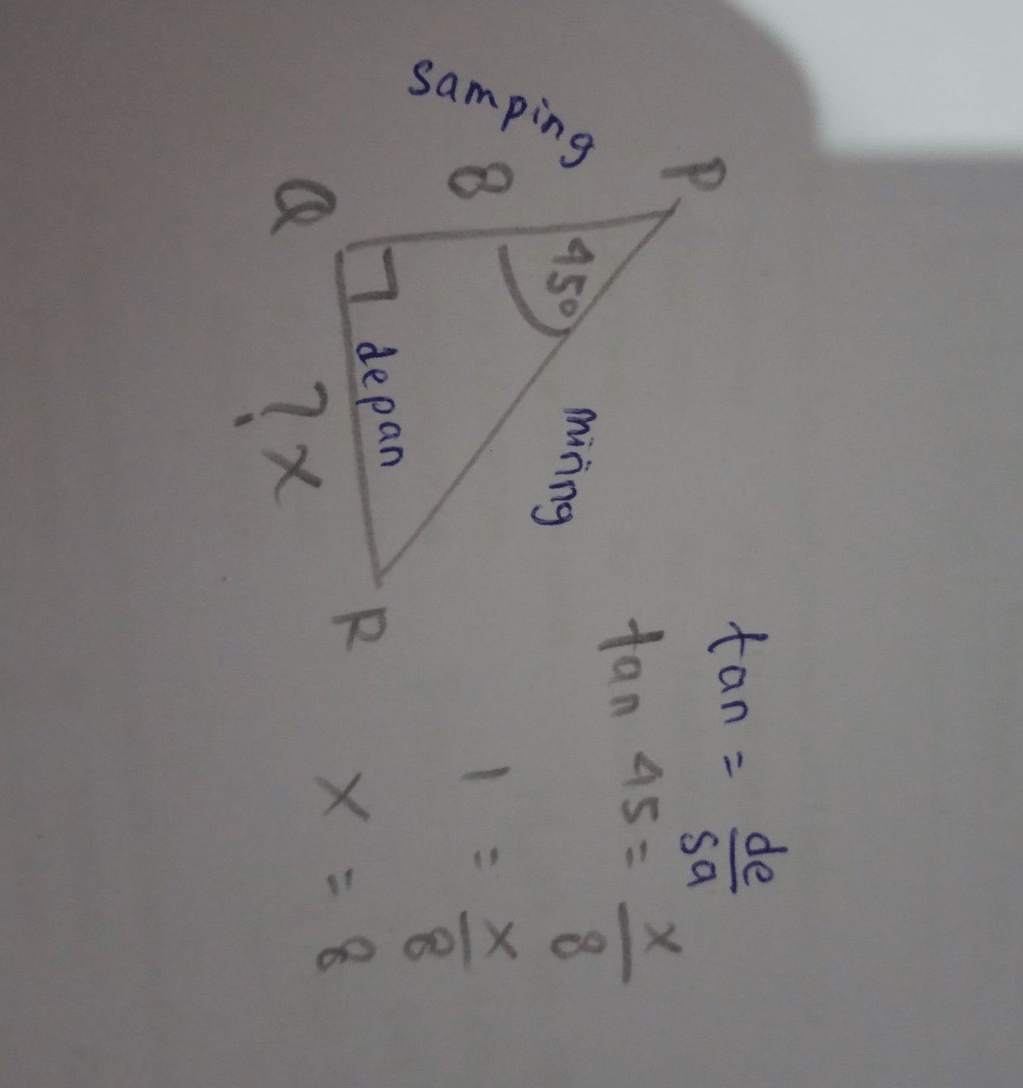 P
samping
8
45°
miring
Q
depan
R
? x
tan = de/sa
tan 45 = x/8
1 = x/8
x = 8